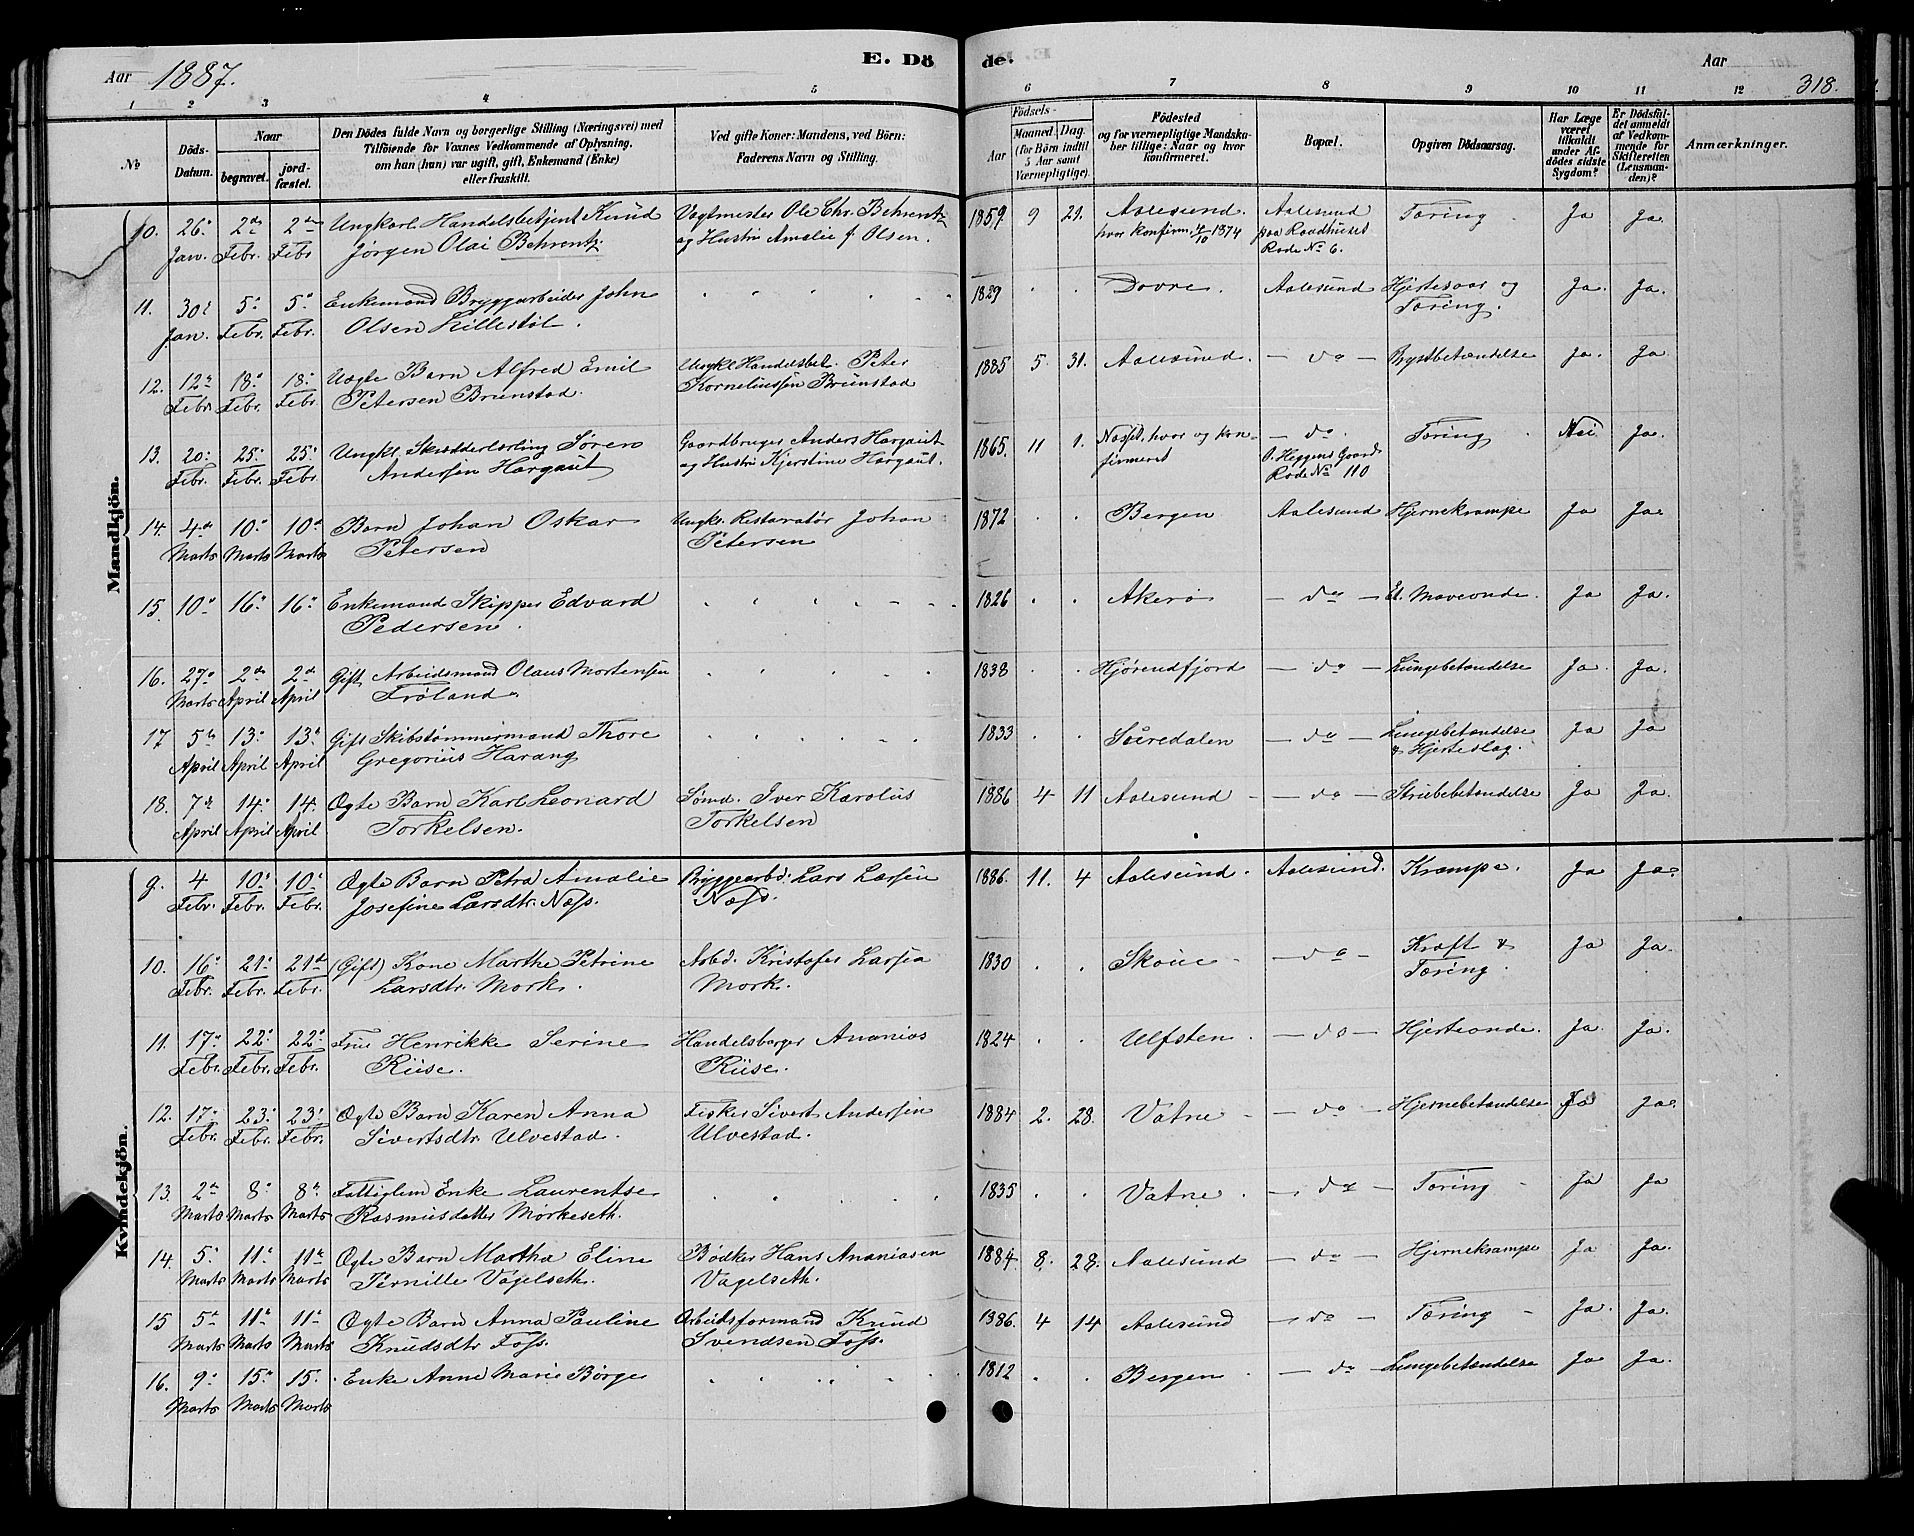 E. Döde.
Aar 1887.
Aar
318.
1 2 3 4 5 6 7 8 9 10 11 12
No
Döds-Datum.
Naar
begravet.
jord-fæstet.
Den Dödes fulde Navn og borgerlige Stilling (Næringsvei) med
Tilföiende for Voxnes Vedkommende af Oplysning,
om han (hun) var ugift, gift, Enkemand (Enke)
eller fraskilt.
Ved gifte Koner: Mandens, ved Börn:
Faderens Navn og Stilling.
Födsels-
Aar
Maaned
Dag.
(for Börn indtil
5 Aar samt
Værnepligtige).
Födested
og for værnepligtige Mandska-
ber tillige: Naar og hvor
konfirmeret.
Bopæl.
Opgiven Dödsaarsag.
Har Læge
været
tilkaldt
under Af-
dödes sidste
Sygdom?
Er Dödsfal-
det anmeldt
af Vedkom-
mende for
Skifteretten
(Lensman-
den)?
Anmærkninger.
Mandkjön.
10. 26 Jan. 2den Febr. 2den Febr Ungkarl Handelsbetjent Knud Vagtmester Ole Chr. Behrentz 1859. 9 21. Aalesund. Aalesund Tæring Ja Ja.
Jörgen Olai Behrentz og Hustru Amalie f. Olsen. hvor konfirm. 4/10 1874 paa Raadhuset
Rode No 6.
11. 30 Jan. 5 Febr. 5 Febr. Enkemand Bryggearbeider John 1829 Dovre. Aalesund Hjertesaar og Ja. Ja.
Olsen Lillestöl. Tæring.
12. 12 Febr. 18 Febr. 18 Febr. Uægte Barn Alfred Emil Ungkl Handelsbet. Peter 1885 5. 31. Aalesund. - do - Brystbetændelse Ja. Ja
Petersen Brunstad. Korneliussen Brunstad
13. 20 Febr. 25 Febr. 25 Febr. Ungkl. Skrædderlærling Sören Gaardbruger Anders Hargaut 1865. 11 1. Næsset, hvor og kon- - do - Tæring Nei Ja.
Andersen Hargaut og Hustru Kjerstine Hargaut. firmeret O. Heggens Gaard
Rode No 110
14. 4de Marts 10 Marts 10 Marts Barn Johan Oskar Ungkr. Restauratör Johan 1872 Bergen Aalesund Hjernekrampe Ja Ja.
Petersen Petersen
15. 10 16 16 Enkemand Skipper Edvard 1826 Akerö - do - El. Maveonde. Ja Ja.
Pedersen.
16. 27 Marts 2den April 2den April Gift Arbeidsmand Olaus Mortensen 1838 Hjörendfjord - do - Lungebetændelse Ja. Ja.
Fröland
17 5te April 13 April 13 April Gift Skibstömmermand Thore 1833 - do - Lungebetændelse Ja Ja
Gregorius Harang & Hjerteslag.
18. 7de April 14 April 14. April Ægte Barn Karl Leonard Sömd. Iver Karolus 1886 4 11 Aalesund - do - Strubebetændelse Ja Ja.
Torkelsen. Torkelsen
Kvindekjön.
9. 4 Febr. 10 Febr. 10 Febr. Ægte Barn Petra Amalie Bryggearbd. Lars Larsen 1886. 11. 4 Aalesund. Aalesund. Krampe. Ja Ja.
Josefine Larsdtr. Næss. Næss.
10. 16 Febr. 21 Febr. 21 Febr. (Gift) Kone Marthe Petrine Arbd. Kristofer Larsen 1830 Skoue - do - Kræft & Ja Ja.
Larsdtr. Mork. Mork. Tæring.
11. 17 Febr. 22 Febr. 22 Febr. Frue Henrikke Serine Handelsborger Ananias 1824 Ulfsten - do - Hjerteonde. Ja. Ja.
Riise. Riise.
12. 17 Febr. 23 Febr. 23 Febr. Ægte Barn Karen Anna Fisker Sivert Andersen 1884 2. 28. Vatne - do - Hjernebetændelse Ja Ja.
Sivertsdtr Ulvestad. Ulvestad.
13. 2 Marts 8 Marts 8 Marts Fattiglem Enke Laurentse 1835 Vatne - do - Tæring Ja Ja
Rasmusdatter Mörkeseth.
14. 5 Marts 11 Marts 11 Marts Ægte Barn Martha Eline Bödker Hans Ananiasen 1884 8. 28. Aalesund - do - Hjernekrampe Ja Ja.
Pernille Vagelseth. Vagelseth.
15 5 Marts 11 Marts 11 Marts Ægte Barn Anna Pauline Arbeidsformand Knud 1886. 4 14 Aalesund - do - Tæring Ja. Ja.
Knudsdtr Foss. Svendsen Foss.
16. 9 Marts 15 Marts 15. Marts Enke Anne Marie Börge 1812 Bergen - do - Lungebetændelse Ja Ja.